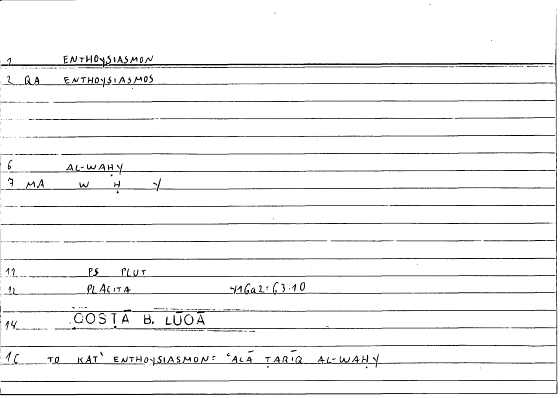 1 ENTHOYSIASMON
2 QA ENTHOYSIASMOS
6 AL-WAḤY
7 MA W Ḥ Y
11 PS PLUT
12 PLACITA 416a2=63.10
14 QOSṬĀ B. LŪQĀ
16 TO KAT' ENTHOYSIASMON: ʿALĀ ṬARĪQ AL-WAḤY